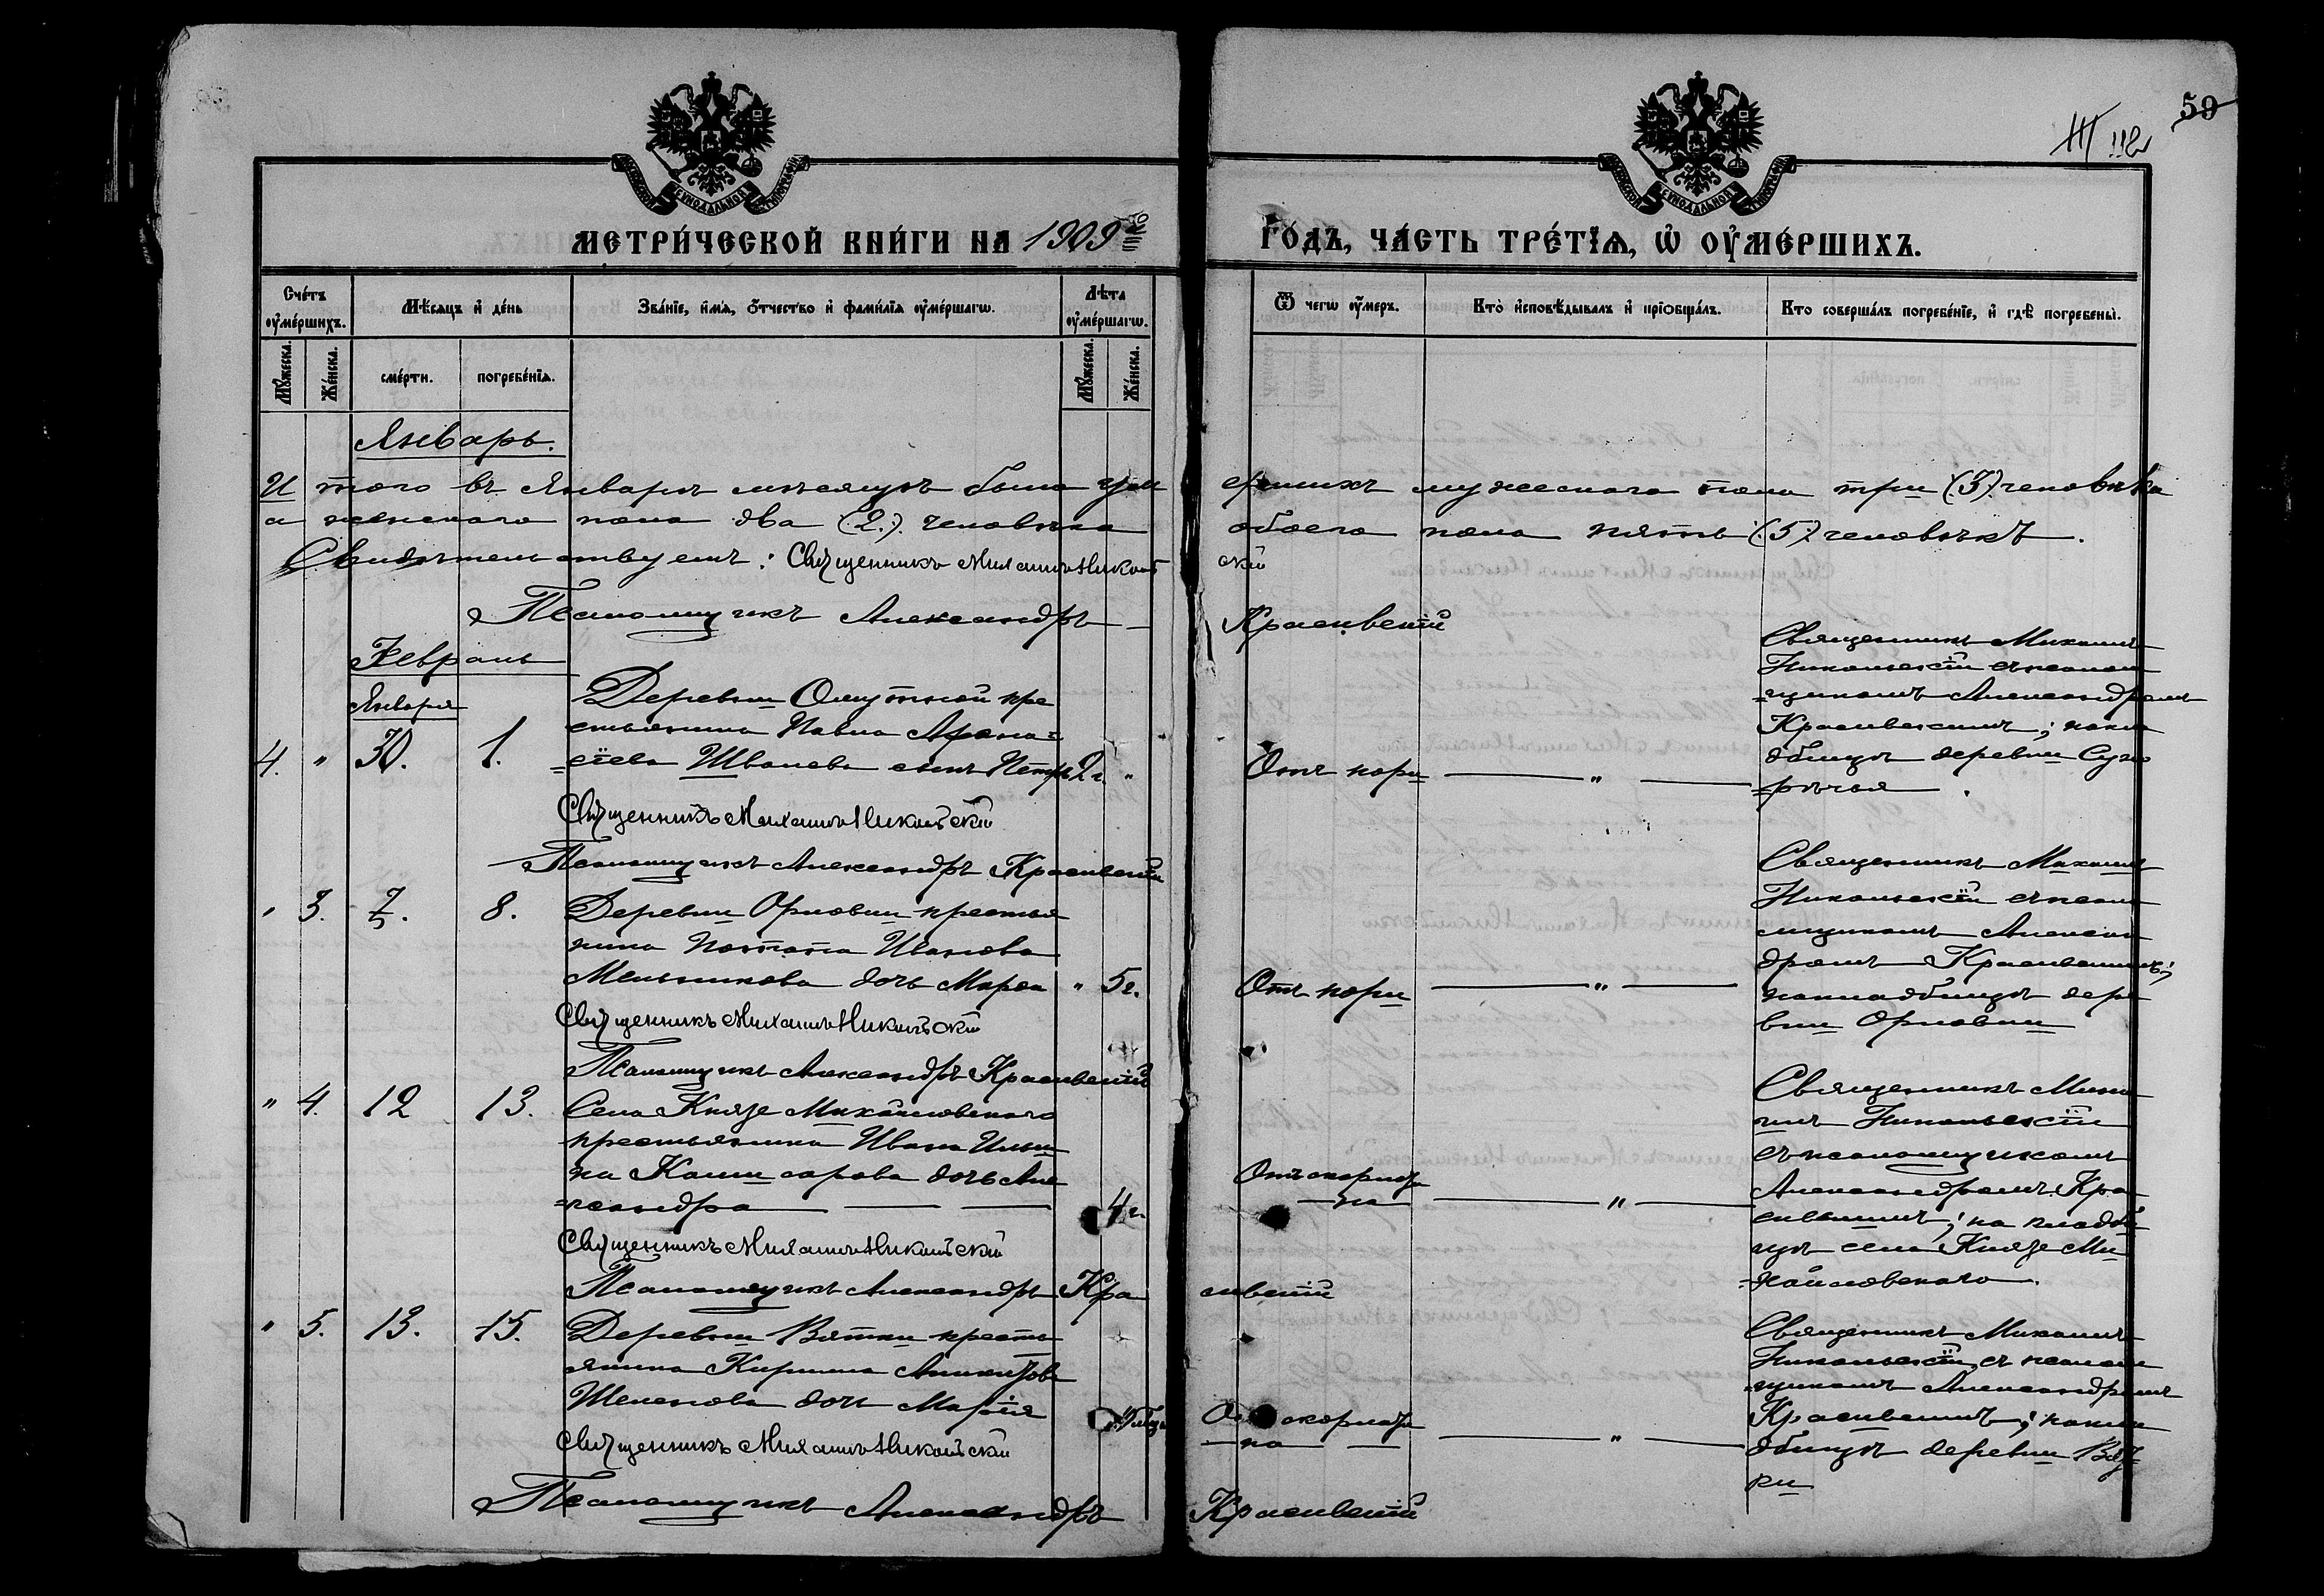 59
112
МЕТРИ́ЧЕСКОЙ КНИ́ГИ НА 1909 ГО́ДЪ, ЧА́СТЬ ТРЕ́ТІѦ, Ѡ ОУ҆МЕ́РШИХЪ.
Сче́тъ оу҆ме́ршихъ.
Мѣ́сяцъ и҆ де́нь
Зва́ніе, и҆́мя, о҆́тчество и҆ фами́лія оу҆ме́ршагѡ.
Лѣ́та оу҆ме́ршагѡ.
Ѿ чегѡ̀ оу҆́меръ.
Кто̀ и҆сповѣ́дывалъ и҆ пріобща́лъ.
Кто соверша́лъ погребе́ніе, и҆ гдѣ̀ погребены̀.
Мꙋ́жеска.
Же́нска.
сме́рти.
погребе́нія.
Мꙋ́жеска.
Же́нска.
Январь.
И того въ Январѣ мѣсяцѣ было умершихъ мужескаго пола три (3) человѣка
а женскаго пола два (2.) человѣка обоего пола пять (5) человѣкъ.
Свидѣтельствуемъ: Священникъ Михаилъ Никольскій
Псаломщикъ Александръ Красивскій
Февраль
Января
4. " 30. 1.
Деревни Омутной кре
стьянина Павла Афана=
=сіева Швалева сынъ Петръ 2 г. "
Отъ кори — " —
Священникъ Михаилъ
Никольскій съ псалом
=щикомъ Александромъ
Красивскимъ; на кла
дбищѣ деревни Сухо
=рѣчья.
Священникъ Михаилъ Никольскій
Псаломщикъ Александръ Красивскій
" 3. 7. 8.
Деревни Орловки крестья
нина Потапа Иванова
Мельникова дочь Марѳа " 5 г.
Отъ кори — " —
Священникъ Михаилъ
Никольскій съ псало
мщикомъ Алексан
дромъ Красивскимъ;
на кладбищѣ дере
вни Орловки
Священникъ Михаилъ Никольскій
Псаломщикъ Александръ Красивскій
" 4. 12 13.
Села Князе Михайловскаго
крестьянина Ивана Ильи
на Комисарова дочь Але
=ксандра — — 4 г.
Отъ скарлати
—на — " —
Священникъ Миха
илъ Никольскій
съ псаломщикомъ
Александромъ Кра
сивскимъ; на кладби
щѣ села Князе Ми
=хайловскаго.
Священникъ Михаилъ Никольскій
Псаломщикъ Александръ Красивскій
" 5. 13. 15.
Деревни Вятки кресть
янина Кирилла
дочь Марія
скарлати
—на — " —
Священникъ Михаилъ
Никольскій съ псалом
=щикомъ Александромъ
Красивскимъ; на кла
дбищѣ деревни Вят
ки
Священникъ Михаилъ Никольскій
Псаломщикъ Александръ Красивскій